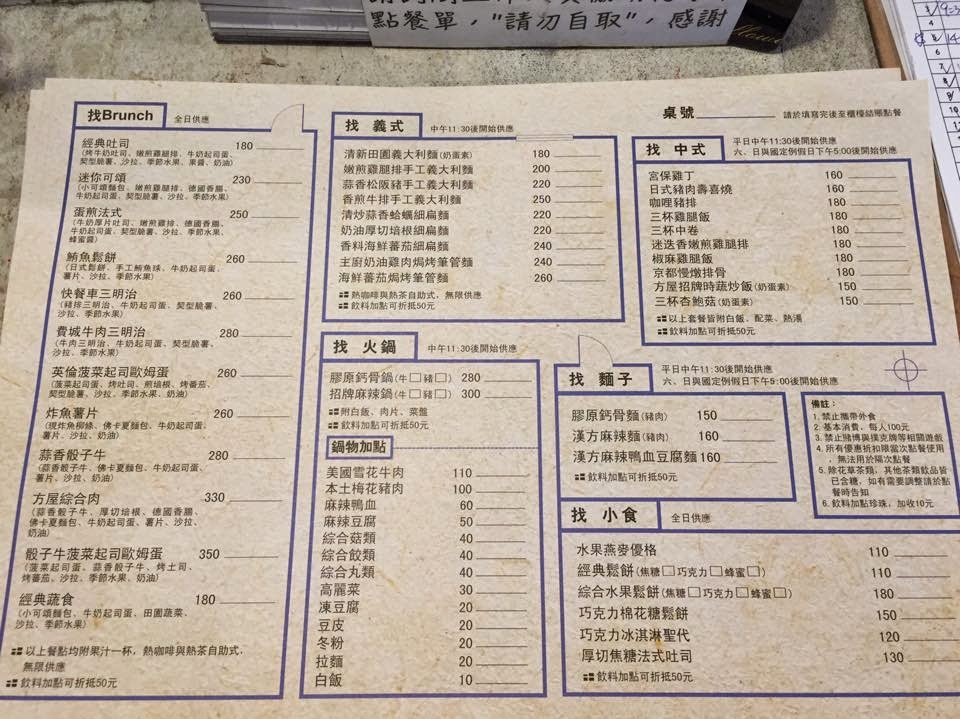 點餐單，"請勿自取"，感謝
找Brunch 全日供應
經典吐司 180
(烤牛奶吐司、嫩煎雞腿排、牛奶起司蛋、
契型脆薯、沙拉、季節水果、果醬、奶油)
迷你可頌 230
(小可頌麵包、嫩煎雞腿排、德國香腸、
牛奶起司蛋、契型脆薯、沙拉、季節水果)
蛋煎法式 250
(牛奶厚片吐司、嫩煎雞排、德國香腸、
牛奶起司蛋、契型脆薯、沙拉、季節水果、
蜂蜜醬)
鮪魚鬆餅 260
(日式鬆餅、手工鮪魚球、牛奶起司蛋、
薯片、沙拉、季節水果)
快餐車三明治 260
(豬排三明治、牛奶起司蛋、契型脆薯、
沙拉、季節水果)
費城牛肉三明治 280
(牛肉三明治、牛奶起司蛋、契型脆薯、
沙拉、季節水果)
英倫菠菜起司歐姆蛋 260
(菠菜起司蛋、烤吐司、煎培根、烤蕃茄、
契型脆薯、沙拉、季節水果、奶油)
炸魚薯片 260
(現炸魚柳條、佛卡夏麵包、牛奶起司蛋、
薯片、沙拉、奶油)
蒜香骰子牛 280
(蒜香骰子牛、佛卡夏麵包、牛奶起司蛋、
薯片、沙拉、奶油)
方屋綜合肉 330
(蒜香骰子牛、厚切培根、德國香腸、
佛卡夏麵包、牛奶起司蛋、薯片、沙拉、
奶油)
骰子牛菠菜起司歐姆蛋 350
(菠菜起司蛋、蒜香骰子牛、烤土司、
烤蕃茄、沙拉、季節水果、奶油)
經典蔬食 180
(小可頌麵包、牛奶起司蛋、田園蔬菜、
沙拉、季節水果)
以上餐點均附果汁一杯，熱咖啡與熱茶自助式，
無限供應
飲料加點可折抵50元
找 義式 中午11:30後開始供應
清新田園義大利麵(奶蛋素) 180
嫩煎雞腿排手工義大利麵 200
蒜香松阪豬手工義大利麵 220
香煎牛排手工義大利麵 250
清炒蒜香蛤蠣細扁麵 220
奶油厚切培根細扁麵 220
香料海鮮蕃茄細扁麵 240
主廚奶油雞肉焗烤筆管麵 240
海鮮蕃茄焗烤筆管麵 260
熱咖啡與熱茶自助式，無限供應
飲料加點可折抵50元
找 火鍋 中午11:30後開始供應
膠原鈣骨鍋(牛□豬□) 280
招牌麻辣鍋(牛□豬□) 300
附白飯、肉片、菜盤
飲料加點可折抵50元
鍋物加點
美國雪花牛肉 110
本土梅花豬肉 100
麻辣鴨血 60
麻辣豆腐 50
綜合菇類 40
綜合餃類 40
綜合丸類 40
高麗菜 30
凍豆腐 20
豆皮 20
冬粉 20
拉麵 20
白飯 10
桌號 請於填寫完後至櫃檯結賬點餐
找 中式 平日中午11:30後開始供應
六、日與國定例假日下午5:00後開始供應
宮保雞丁 160
日式豬肉壽喜燒 160
咖哩豬排 180
三杯雞腿飯 180
三杯中卷 180
迷迭香嫩煎雞腿排 180
椒麻雞腿飯 180
京都慢燉排骨 180
方屋招牌時蔬炒飯(奶蛋素) 150
三杯杏鮑菇(奶蛋素) 150
以上套餐皆附白飯、配菜、熱湯
飲料加點可折抵50元
找 麵子 平日中午11:30後開始供應
六、日與國定例假日下午5:00後開始供應
膠原鈣骨麵(豬肉) 150
漢方麻辣麵(豬肉) 160
漢方麻辣鴨血豆腐麵 160
飲料加點可折抵50元
備註：
1. 禁止攜帶外食
2. 基本消費，每人100元
3. 禁止賭博與撲克牌等相關遊戲
4. 所有優惠折扣限當次點餐使用
，無法用於隔次點餐
5. 除花草茶類，其他茶類飲品皆
已含糖，如有需要調整請於點
餐時告知
6. 飲料加點珍珠，加收10元
找 小食 全日供應
水果燕麥優格 110
經典鬆餅(焦糖□巧克力□蜂蜜□) 110
綜合水果鬆餅(焦糖□巧克力□蜂蜜□) 180
巧克力棉花糖鬆餅 150
巧克力冰淇淋聖代 120
厚切焦糖法式吐司 130
飲料加點可折抵50元